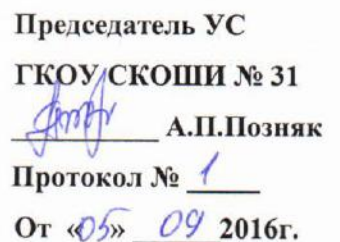 Председатель УС
ГКОУ СКОШИ № 31
А.П.Позняк
Протокол № 1
От «05» 09 2016г.